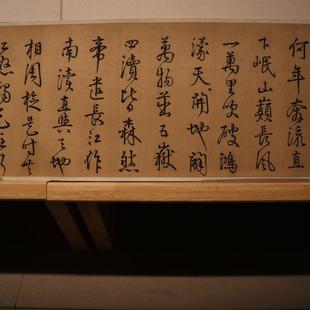 何年奔流直
下岷山巔長風
一萬里破鴻
濛天開地闢
萬物並五嶽
四瀆皆森然
帝遣長江作
南瀆直與天地
相周旋是時